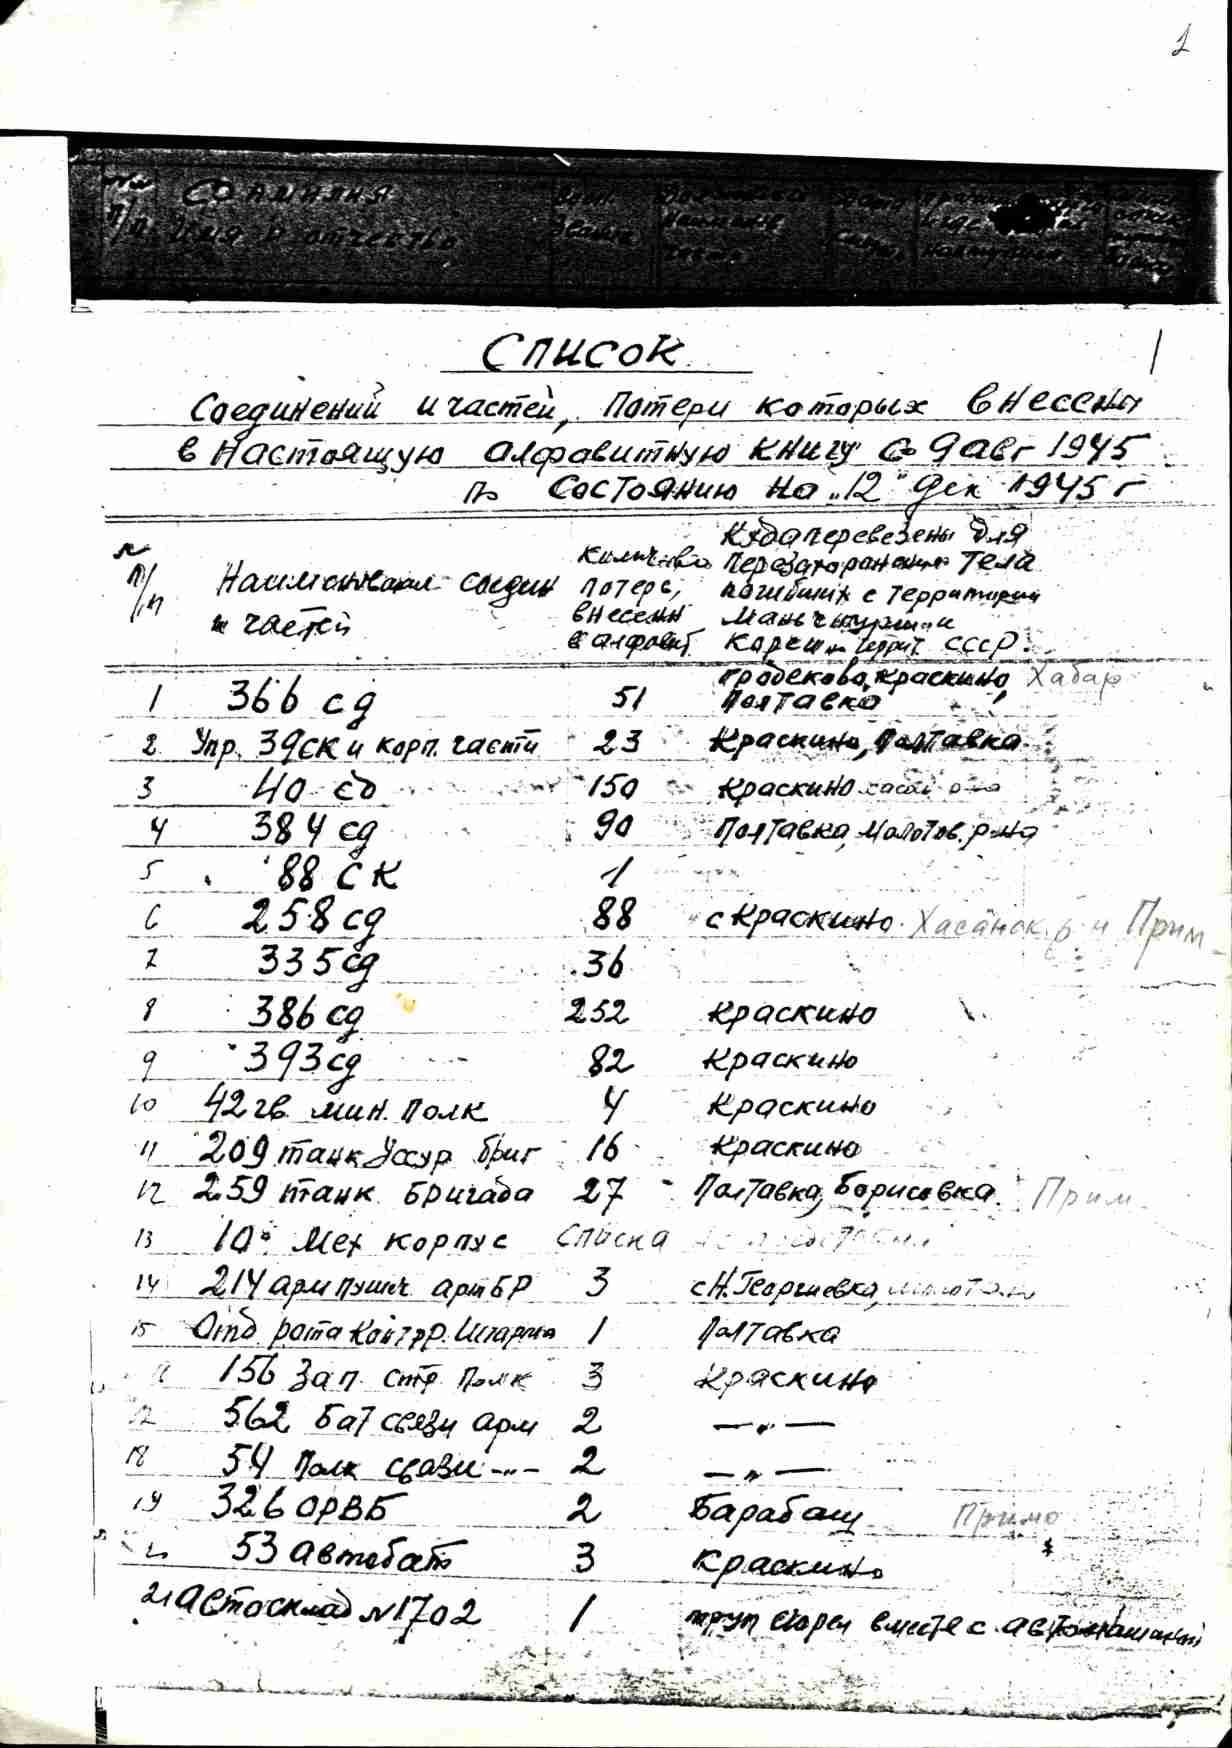 1
№№ п/п
Фамилия
Имя и отчество
Воен.
звание
СПИСОК
1
Соединений и частей, потери которых внесены
в настоящую алфавитную книгу с 9 авг 1945
по состоянию на "12" дек 1945 г
№ п/п
Наименован соедин
и частей
Количество
потерь,
внесенн
в алфавит
Куда перевезены для
перезахоранения тела
погибших с территории
Маньчжурии и
Кореи на террит. СССР.
1 366 сд 51 Гродеково, Краскино, Хабар
Полтавка
2 Упр. 39 СК и корп. части 23 Краскино, Полтавка
3 40 сд 150 Краскино
4 384 сд 90 Полтавка, Молотов. р-на
5 88 СК 1
6 258 сд 88 с Краскино Хасанск р-н Прим
7 335 сд 36
8 386 сд 252 Краскино
9 393 сд 82 Краскино
10 42 гв. мин. полк 4 Краскино
11 209 танк Уссур бриг 16 Краскино
12 259 танк бригада 27 Полтавка, Борисовка. Прим
13 10й Мех корпус Списка не представил
14 214 арм пушеч артБР 3 с Н. Георгиевка,
15 Отд рота Контрр. 1 Полтавка
156 Зап стр Полк 3 Краскино
17 562 Бат связи арм 2 — „ —
18 54 Полк связи -„- 2 — „ —
19 326 ОРВБ 2 Барабаш Примо
53 автобат 3 Краскино
21 Автосклад №1702 1 труп сгорел вместе с автомашиной